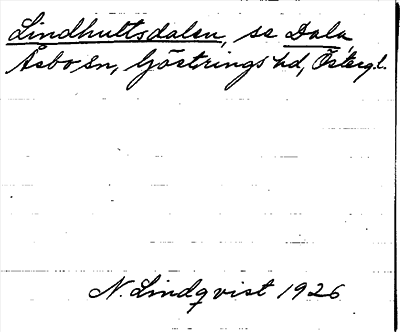 Lindhultsdalen, se Dala
Åsbo sn, Göstrings hd, Östergl.
N. Lindqvist 1926